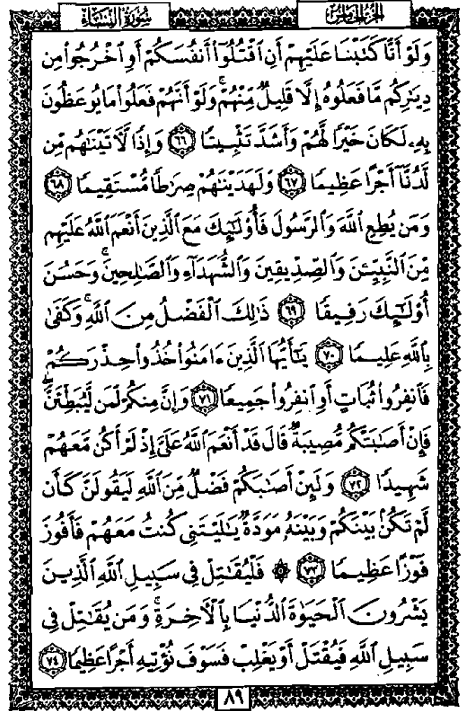 الجزء الخامس
سورة النساء
وَلَوْ أَنَّا كَتَبْنَا عَلَيْهِمْ أَنِ اقْتُلُوٓا۟ أَنفُسَكُمْ أَوِ اخْرُجُوا۟ مِن
دِيَٰرِكُم مَّا فَعَلُوهُ إِلَّا قَلِيلٌ مِّنْهُمْ ۖ وَلَوْ أَنَّهُمْ فَعَلُوا۟ مَا يُوعَظُونَ
بِهِۦ لَكَانَ خَيْرًا لَّهُمْ وَأَشَدَّ تَثْبِيتًا ٦٦ وَإِذًا لَّآتَيْنَٰهُم مِّن
لَّدُنَّآ أَجْرًا عَظِيمًا ٦٧ وَلَهَدَيْنَٰهُمْ صِرَٰطًا مُّسْتَقِيمًا ٦٨
وَمَن يُطِعِ اللَّهَ وَالرَّسُولَ فَأُو۟لَٰٓئِكَ مَعَ الَّذِينَ أَنْعَمَ اللَّهُ عَلَيْهِم
مِّنَ النَّبِيِّـۧنَ وَالصِّدِّيقِينَ وَالشُّهَدَآءِ وَالصَّٰلِحِينَ ۚ وَحَسُنَ
أُو۟لَٰٓئِكَ رَفِيقًا ٦٩ ذَٰلِكَ الْفَضْلُ مِنَ اللَّهِ ۚ وَكَفَىٰ
بِاللَّهِ عَلِيمًا ٧٠ يَٰٓأَيُّهَا الَّذِينَ ءَامَنُوا۟ خُذُوا۟ حِذْرَكُمْ
فَانفِرُوا۟ ثُبَاتٍ أَوِ انفِرُوا۟ جَمِيعًا ٧١ وَإِنَّ مِنكُمْ لَمَن لَّيُبَطِّئَنَّ ۖ
فَإِنْ أَصَٰبَتْكُم مُّصِيبَةٌ قَالَ قَدْ أَنْعَمَ اللَّهُ عَلَىَّ إِذْ لَمْ أَكُن مَّعَهُمْ
شَهِيدًا ٧٢ وَلَئِنْ أَصَٰبَكُمْ فَضْلٌ مِّنَ اللَّهِ لَيَقُولَنَّ كَأَن
لَّمْ تَكُنۢ بَيْنَكُمْ وَبَيْنَهُۥ مَوَدَّةٌ يَٰلَيْتَنِى كُنتُ مَعَهُمْ فَأَفُوزَ
فَوْزًا عَظِيمًا ٧٣ ۞ فَلْيُقَٰتِلْ فِى سَبِيلِ اللَّهِ الَّذِينَ
يَشْرُونَ الْحَيَوٰةَ الدُّنْيَا بِالْءَاخِرَةِ ۚ وَمَن يُقَٰتِلْ فِى
سَبِيلِ اللَّهِ فَيُقْتَلْ أَوْ يَغْلِبْ فَسَوْفَ نُؤْتِيهِ أَجْرًا عَظِيمًا ٧٤
٨٩